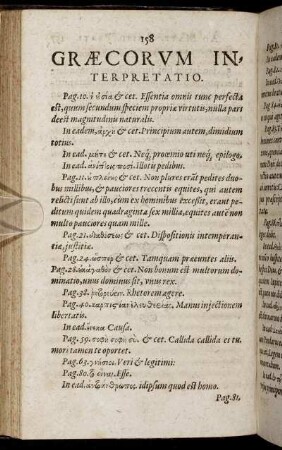 158
GRÆCORVM IN-
TERPRETATIO.
Pag.10. ἡ οὐσία & cet. Essentia omnis tunc perfecta
est, quum secundum speciem propriæ virtutis, nulla pars
deest magnitudinis naturalis.
In eadem, ἀρχὴ & cet. Principium autem, dimidium
totius.
In ead. & cet. Neq; proœmio uti neq; epilogo.
In ead. ἀνίπτοις ποσὶ. Illutis pedibus.
Pag.11. & cet. Non plures erāt pedites duo-
bus millibus, & pauciores trecentis equites, qui autem
relicti sunt ab illo, cùm ex hominibus excessit, erant pe-
ditum quidem quadraginta sex millia, equites autē non
multo pauciores quam mille.
Pag.21. & cet. Dispositionis intemperan-
tia, iustitia.
Pag.24. ὥσπερ & cet. Tamquam præeuntes aliis.
Pag.28. οὐκ ἀγαθὸν & cet. Non bonum est multorum do-
minatio, unus dominus sit, unus rex.
Pag.38. Rhetorem agere.
Pag.40. Manus iniectionem
libertatis.
In ead. Causa.
Pag.59. & cet. Callida callida es tu-
mori tamen te oportet.
Pag.63. γνήσιοι. Veri & legitimi:
Pag.80. εἶναι. Esse.
In ead. idipsum quod est homo.
Pag.81.